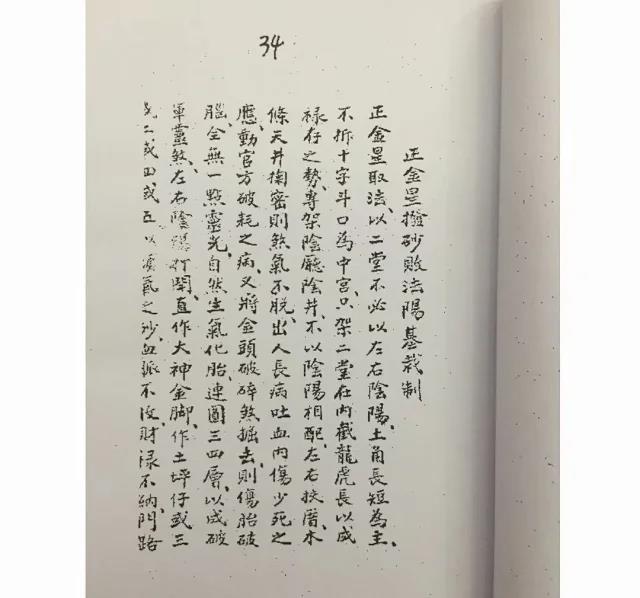 34
正金星撥砂敗法陽基裁制
正金星取法、以二堂不必以左右陰陽、土角長短為主、
不拆十字斗口為中宮、只架二堂在內截龍虎長以成
祿存之勢、專架陰廳陰井、不以陰陽相配、左右挾厝木
條天井掏密則煞氣不脫、出人長病吐血內傷少死之
應、動官方破耗之病、又將金頭破碎煞掘去、則傷胎破
腦、全無一點靈光、自然生氣化胎、連圓三四層、以成破
軍靈煞、左右陰打開、直作大神金脚、作土坪仔或三
或二或四或五以氣之砂、血派不汝財、祿不納、門路